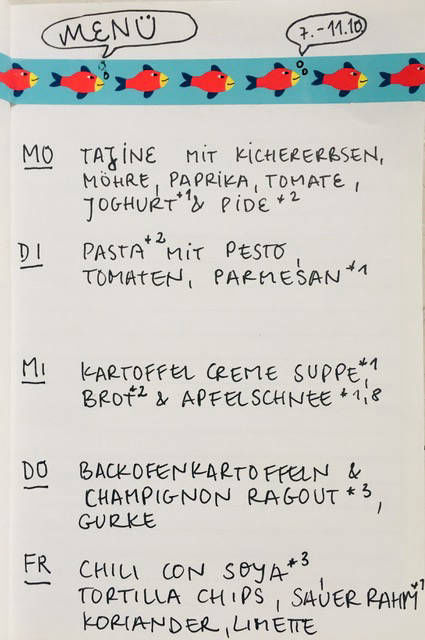 MENÜ
7.-11.10
MO TAJINE MIT KICHERERBSEN,
MÖHRE, PAPRIKA, TOMATE,
JOGHURT*1 & PIDE*2
DI PASTA*2 MIT PESTO,
TOMATEN, PARMESAN*1
MI KARTOFFEL CREME SUPPE*1,
BROT*2 & APFELSCHNEE *1,8
DO BACKOFENKARTOFFELN &
CHAMPIGNON RAGOUT *3,
GURKE
FR CHILI CON SOYA*3,
TORTILLA CHIPS, SAUERRAHM*1
KORIANDER, LIMETTE